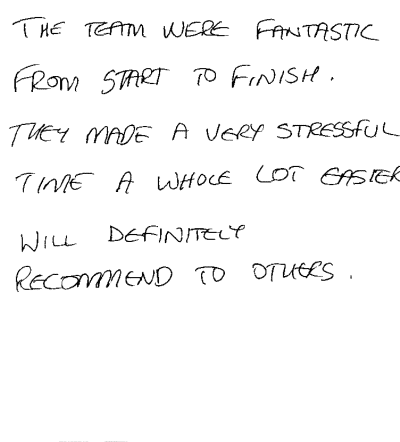 THE TEAM WERE FANTASTIC
FROM START TO FINISH.
THEY MADE A VERY STRESSFUL
TIME A WHOLE LOT EASIER
WILL DEFINITELY
RECOMMEND TO OTHERS.